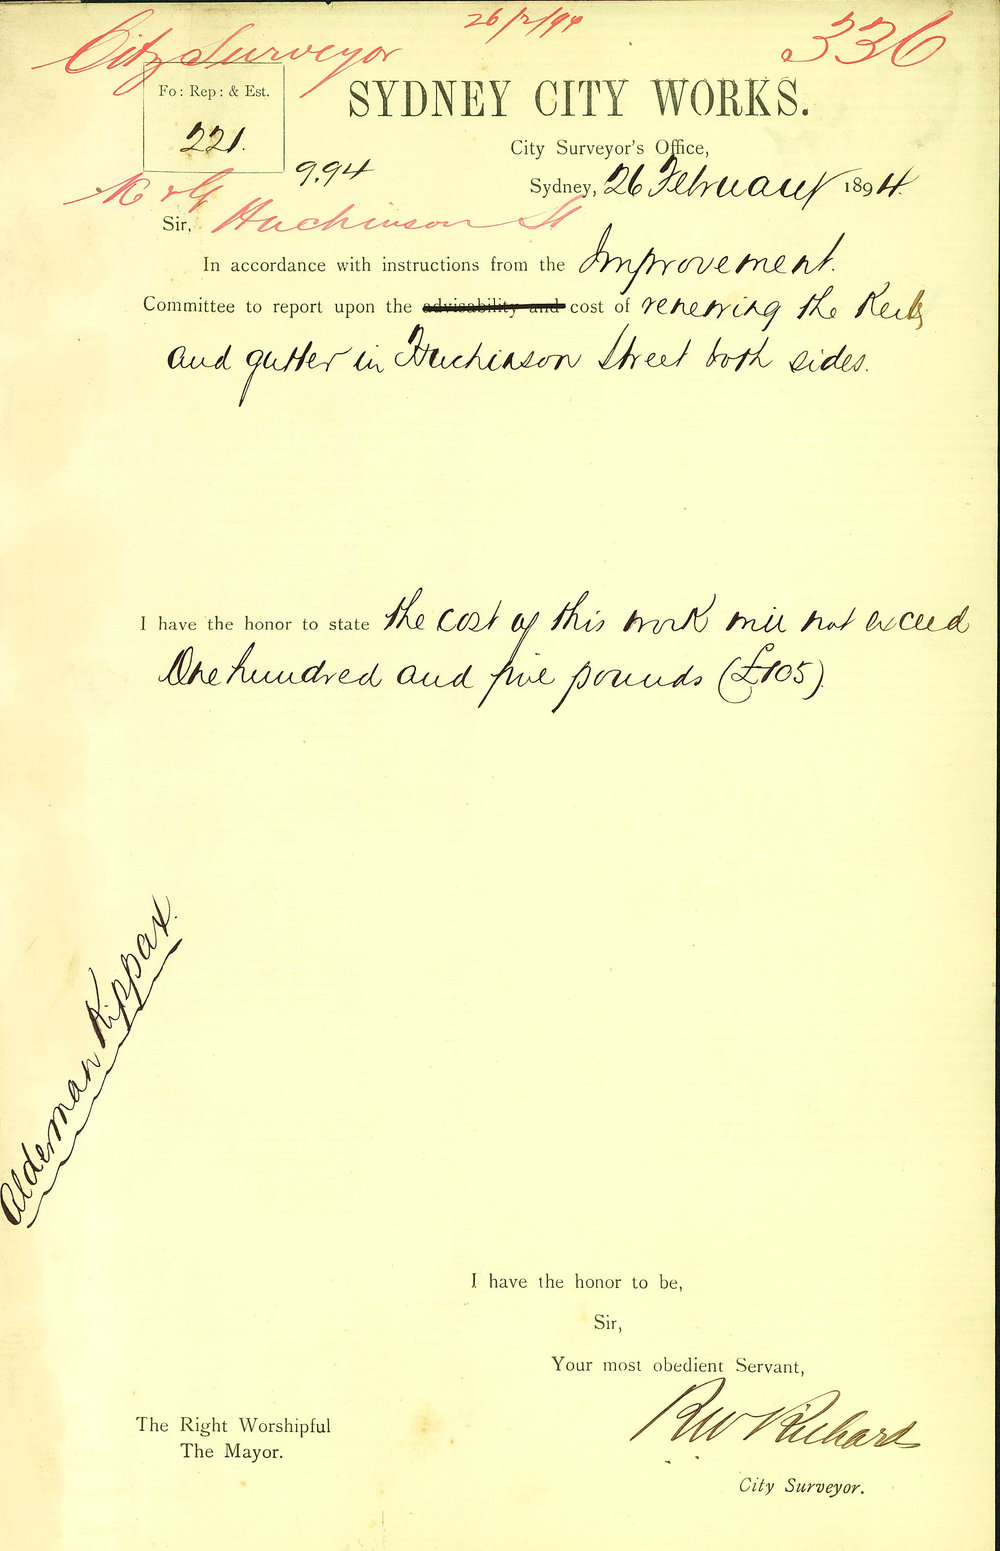 City Surveyor
26/2/94
336
Fo: Rep: & Est.
221.
9.94
SYDNEY CITY WORKS.
City Surveyor's Office,
Sydney, 26 February 1894.
K & G
Sir, Huchinson St
In accordance with instructions from the Improvement.
Committee to report upon the advisability and cost of renewing the Kerb
and gutter in Huchinson Street both sides.
I have the honor to state the cost of this work will not exceed
One hundred and five pounds (£105).
Alderman Kippax.
I have the honor to be,
Sir,
Your most obedient Servant,
The Right Worshipful
The Mayor.
RW Richards
City Surveyor.